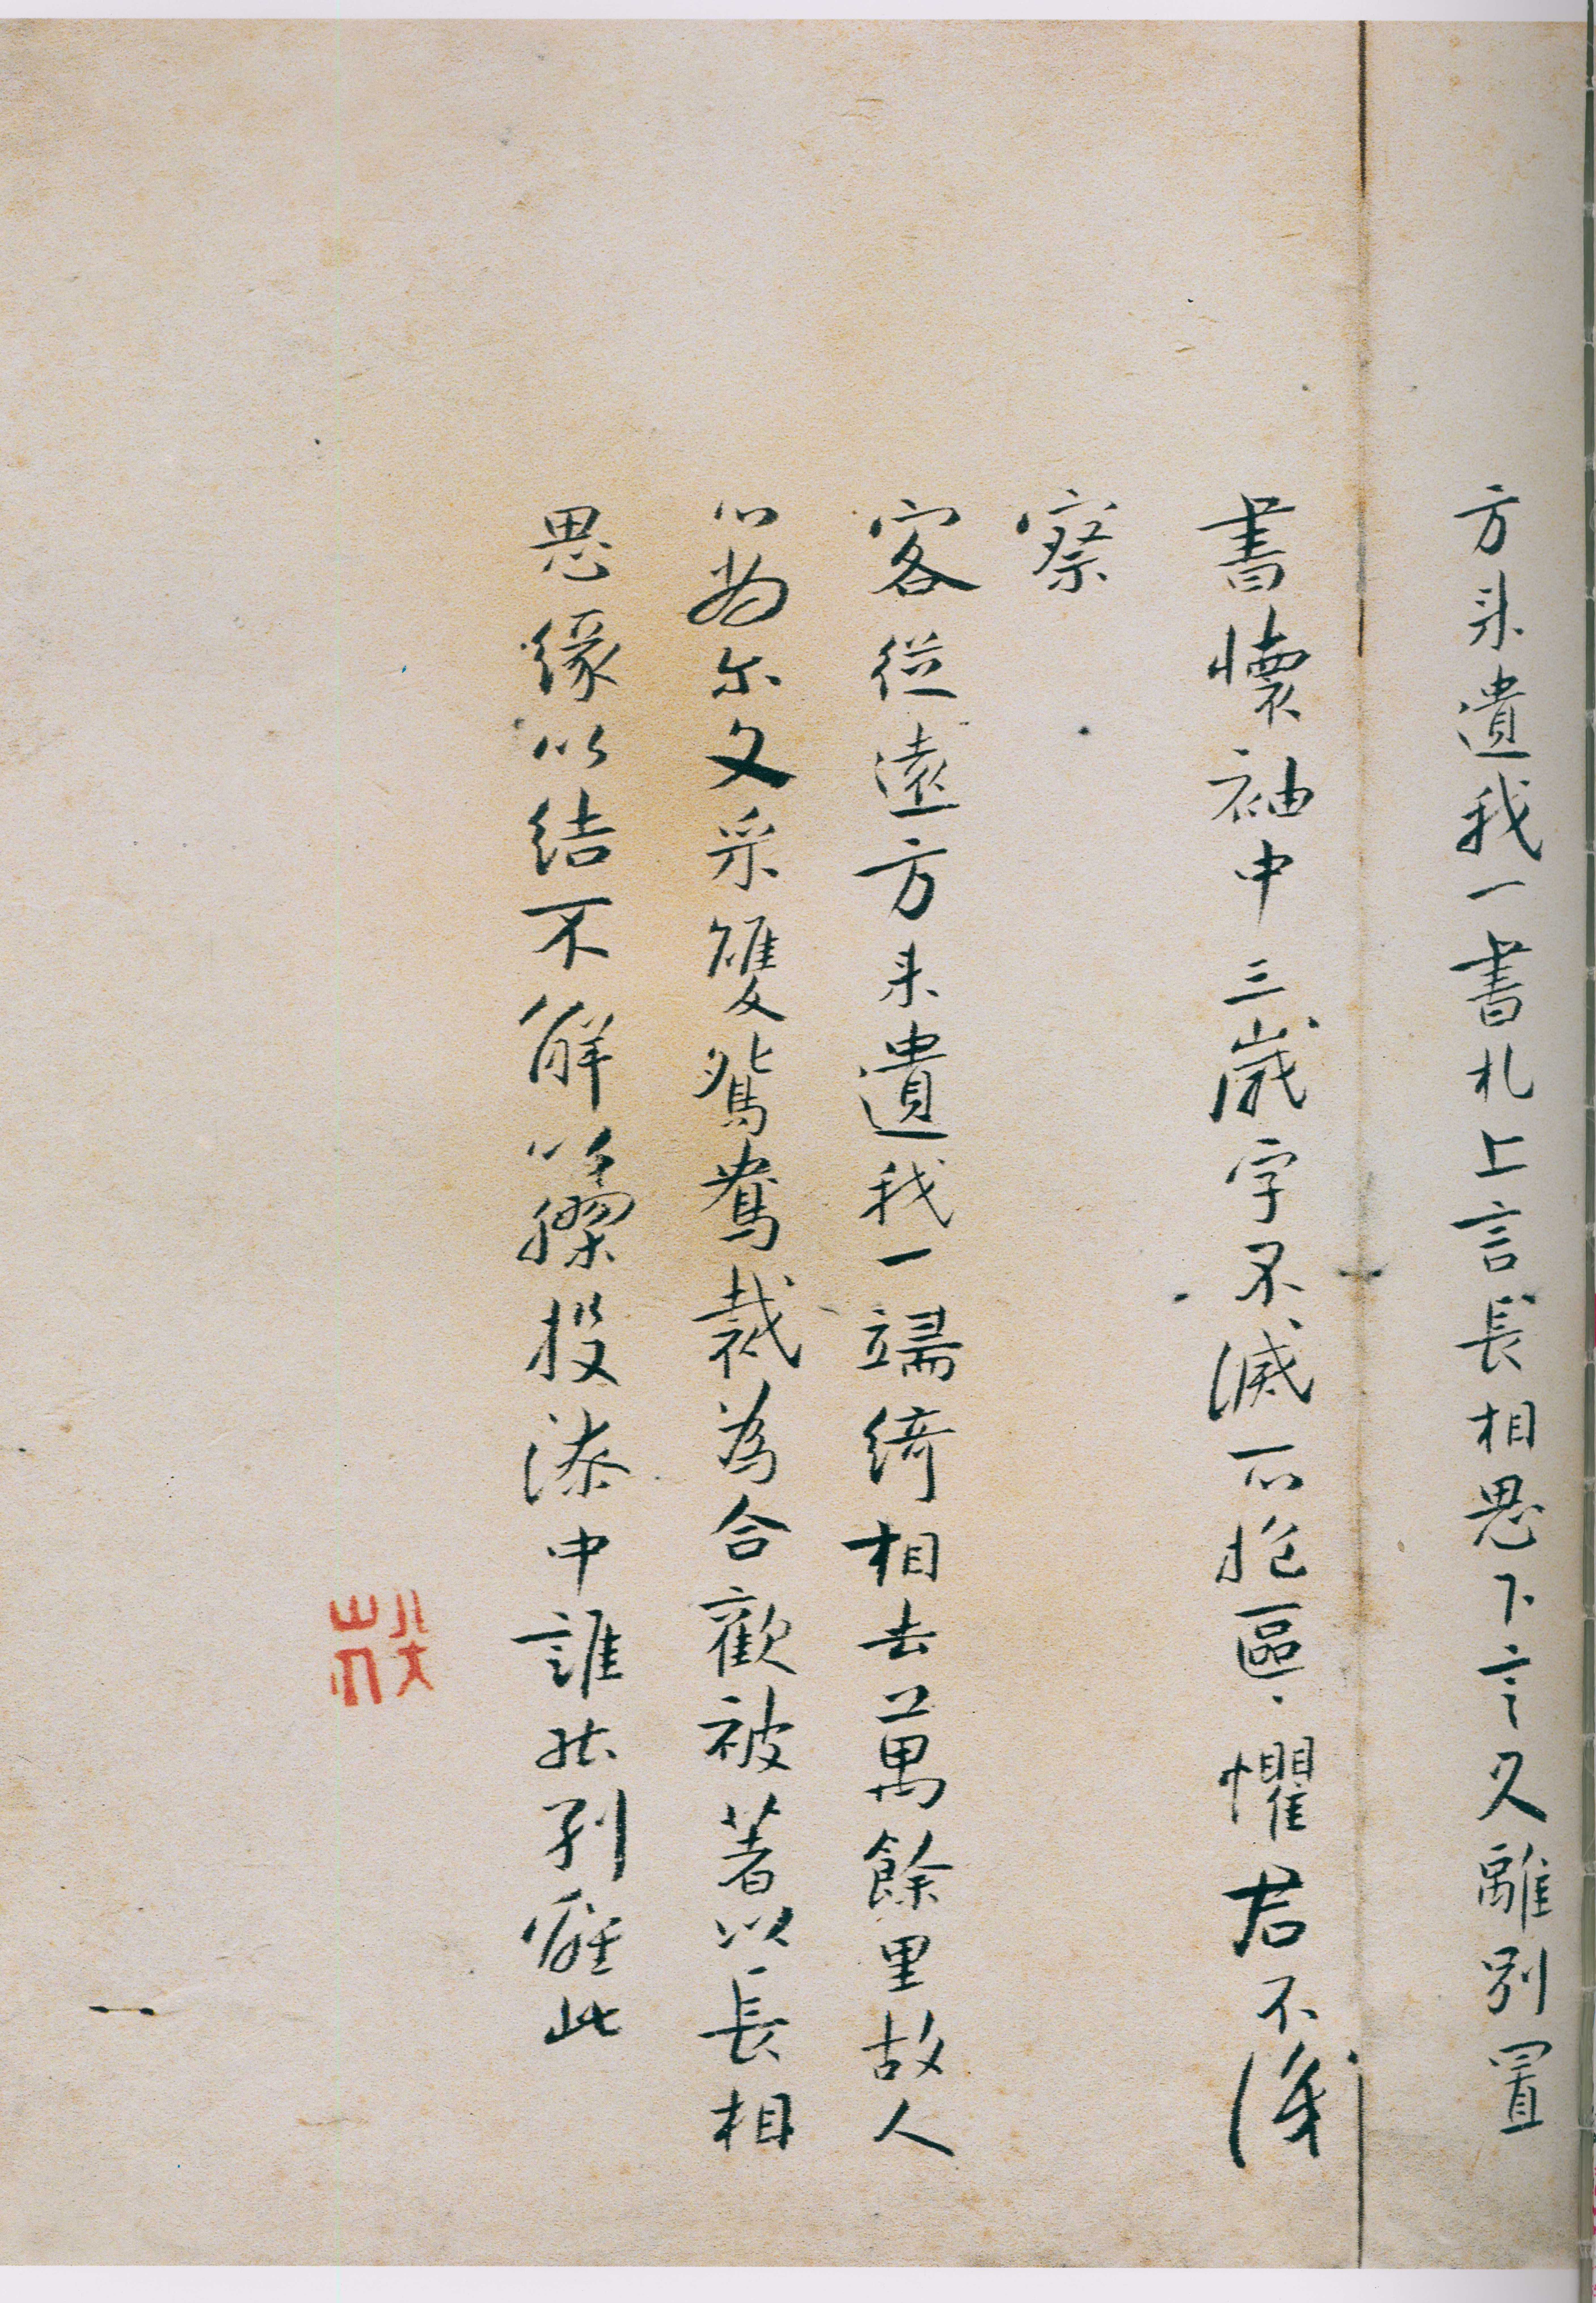 方来遺我一書札上言長相思下言久離別置
書懷袖中三歲字不滅一心抱區〻懼君不識
察
客從遠方来遺我一端綺相去萬餘里故人
心尚尔文采雙鴛鴦裁為合歡被著以長相
思緣以結不解以膠投漆中誰能別離此
八大山人